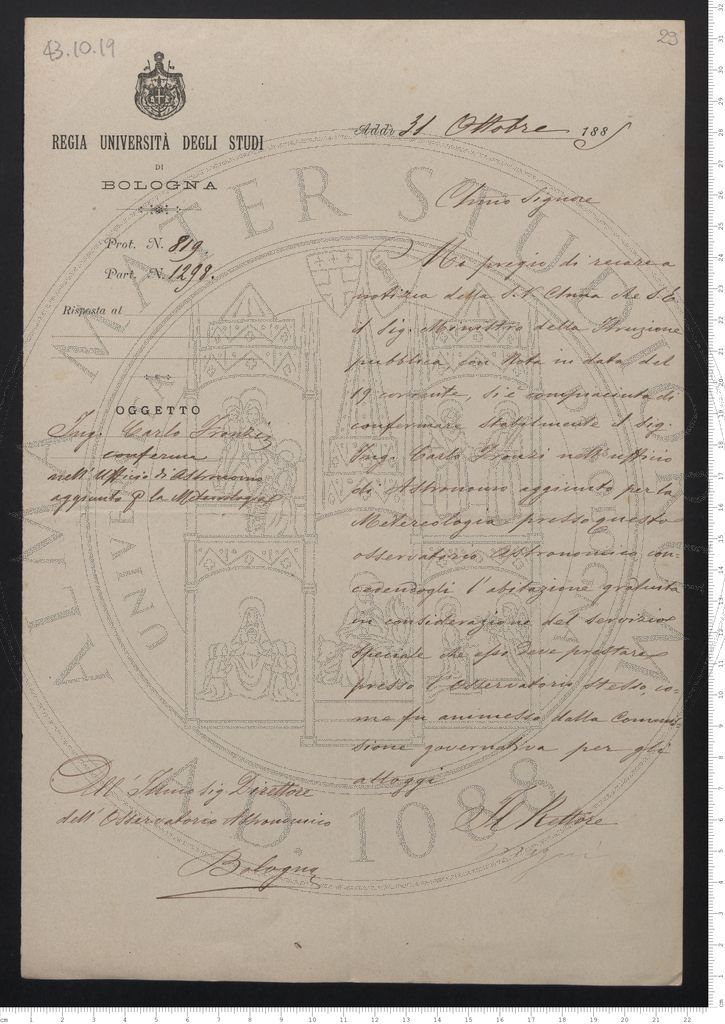 43.10.19
23
REGIA UNIVERSITÀ DEGLI STUDI
DI
BOLOGNA
Prot. N. 819
Part. N. 1298.
Risposta al
OGGETTO
Ing. Carlo Fronzi
conferma
nell'Ufficio di Astronomo
aggiunto p la Meteorologia
Addì 31 Ottobre 1885
Chmo Signore
Mi pregio di recare a
notizia della S. V. Chma che S. E.
il Sig. Ministro della Istruzione
pubblica, con Nota in data del
19 corrente, si è compiaciuta di
confermare stabilmente il Sig.
Ing. Carlo Fronzi nell'ufficio
di Astronomo aggiunto per la
Metereologia presso questo
osservatorio Astronomico con-
cedendogli l'abitazione gratuita
in considerazione del servizio
speciale che esso deve prestare
presso l'Osservatorio stesso, co-
me fu ammesso dalla Commis-
sione governativa per gli
alloggi
Il Rettore
All' Illmo Sig. Direttore
dell'Osservatorio Astronomico
Bologna
ALMA MATER STUDIORUM
A.D. 1088